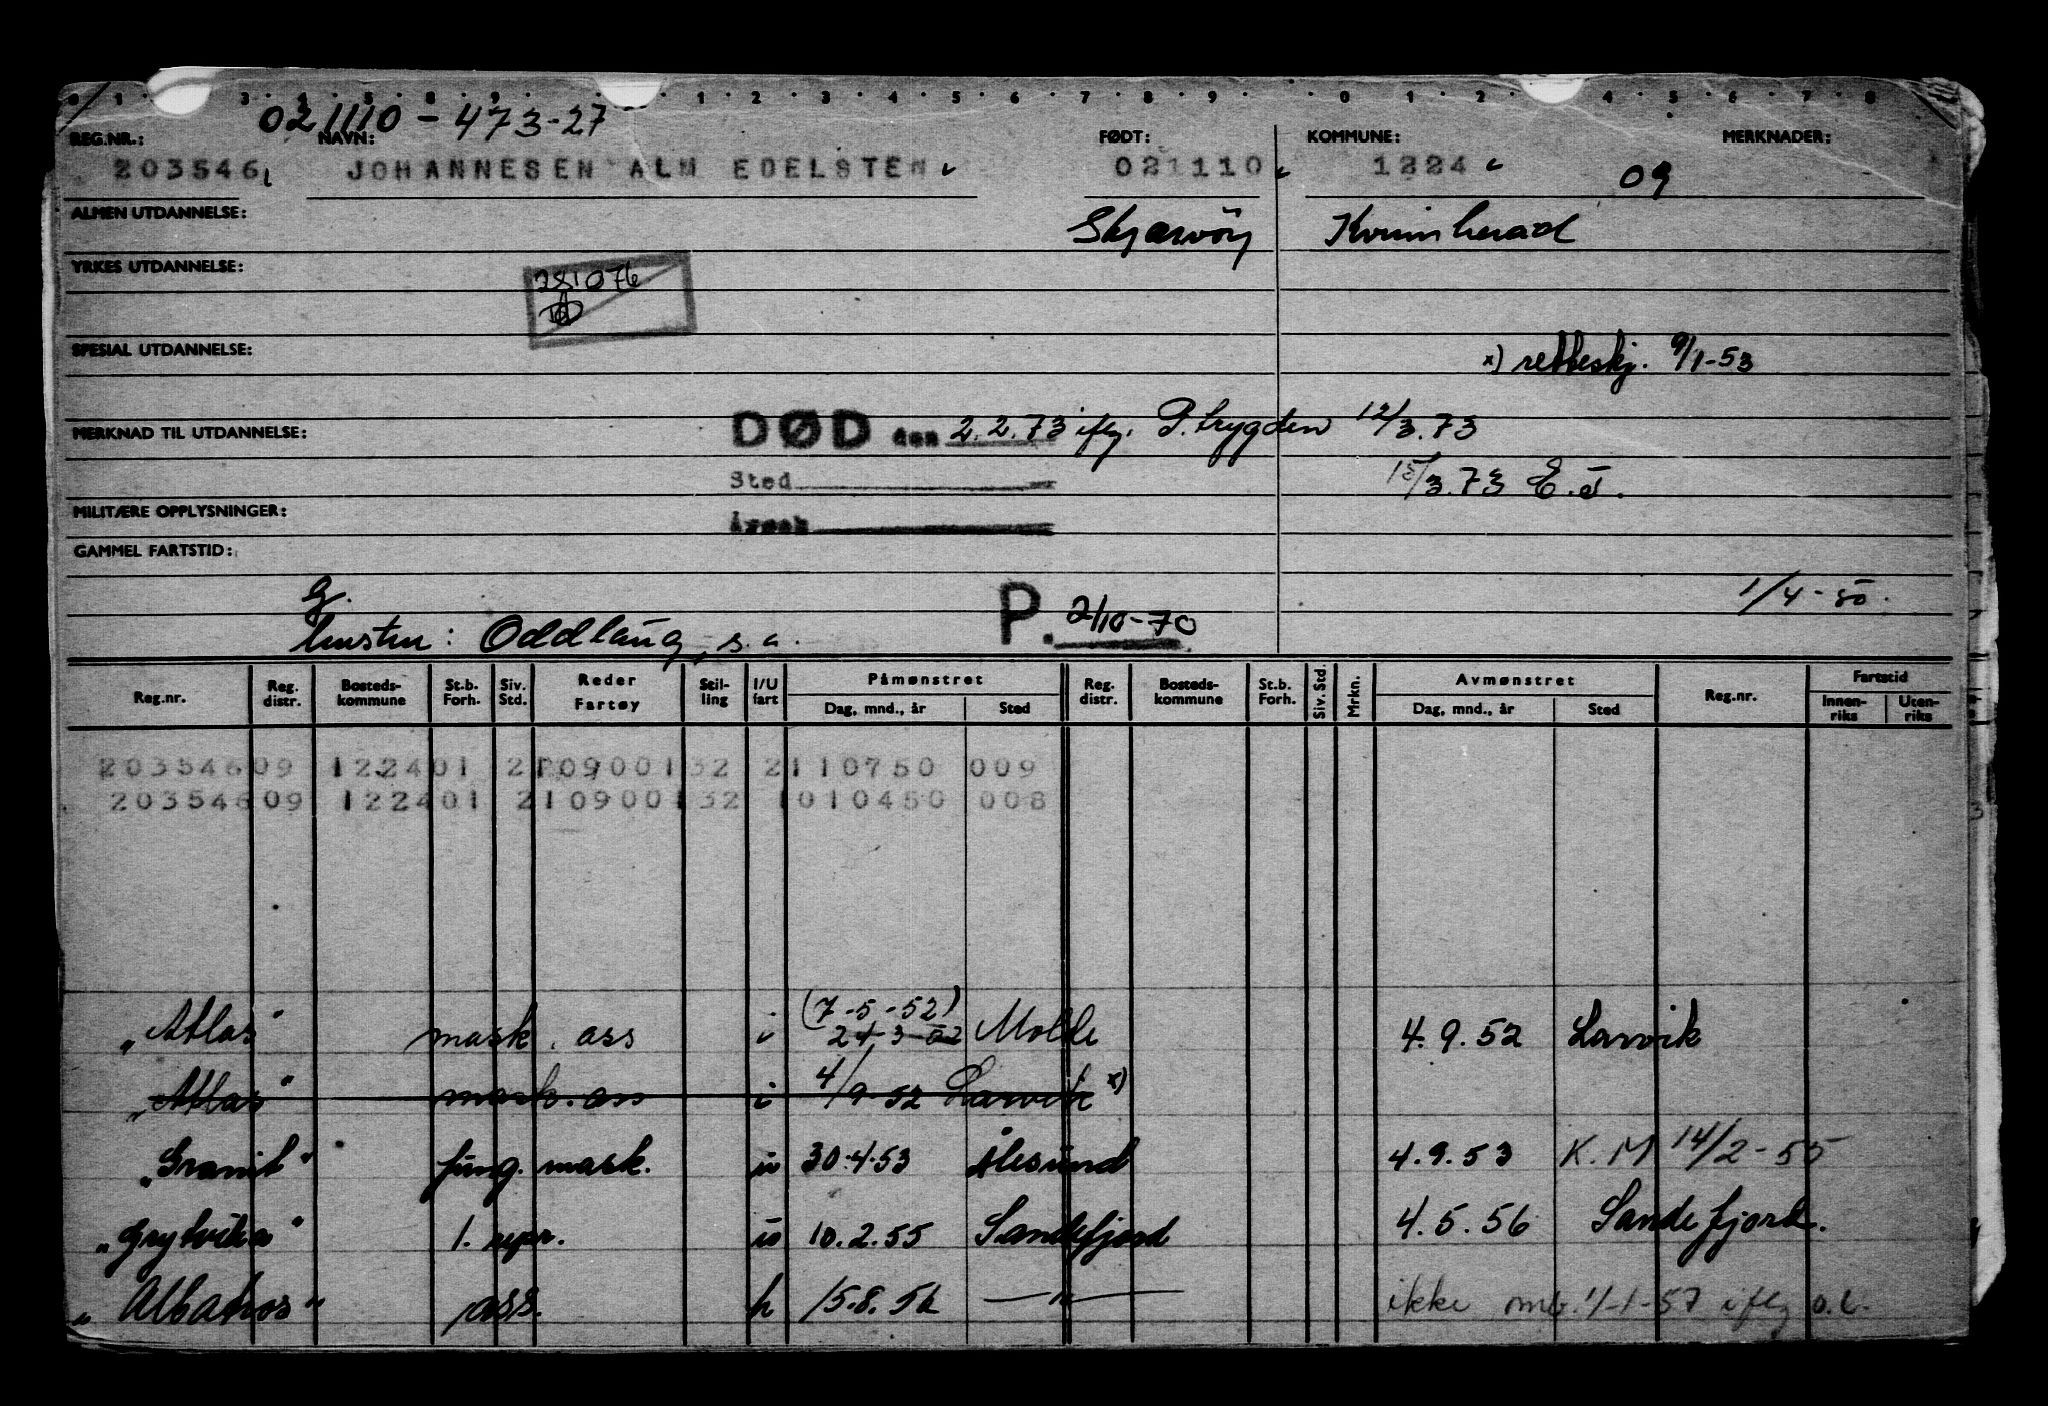 021110 - 473-27
REG.NR.: NAVN: FØDT: KOMMUNE: MERKNADER:
203546 JOHANNESEN ALM EDELSTEN 021110 1224 09
ALMEN UTDANNELSE: Skjærvöy Kvinnherad
YRKES UTDANNELSE: 281076
SPESIAL UTDANNELSE: x) retteskj. 9/1-53
MERKNAD TIL UTDANNELSE: DØD den 2.2.73 iflg. P.trygden 12/3.73
Sted 15/3.73 E.J.
MILITÆRE OPPLYSNINGER: Årsak
GAMMEL FARTSTID:
g. P. 2/10-70 1/4-50.
hustru: Oddlaug, s.a.
Reg.nr. Reg. distr. Bosteds-kommune St.b. Forh. Siv. Std. Reder Fartøy Stil-ling I/U fart Påmønstret Dag, mnd., år Sted Reg. distr. Bosteds-kommune St.b. Forh. Siv. Std. Mrkn. Avmønstret Dag, mnd., år Sted Reg.nr. Fartstid Innen-riks Uten-riks
20354609 122401 210900132 2110750 009
20354609 122401 210900132 1010450 008
(7-5-52)
"Atlas" mask. ass i 24-3-52 Molde 4.9.52 Larvik
"Atlas" mask. ass i 4/9-52 Larvik x)
"Granit" fung. mask. u 30.4.53 Ålesund 4.9.53 K.M 14/2-55
"Grytviken" 1. repr. u 10.2.55 Sandefjord 4.5.56 Sandefjord.
"Albatros" ass. h 15.8.56 —"— ikke omb. 1/1-57 iflg o.l.